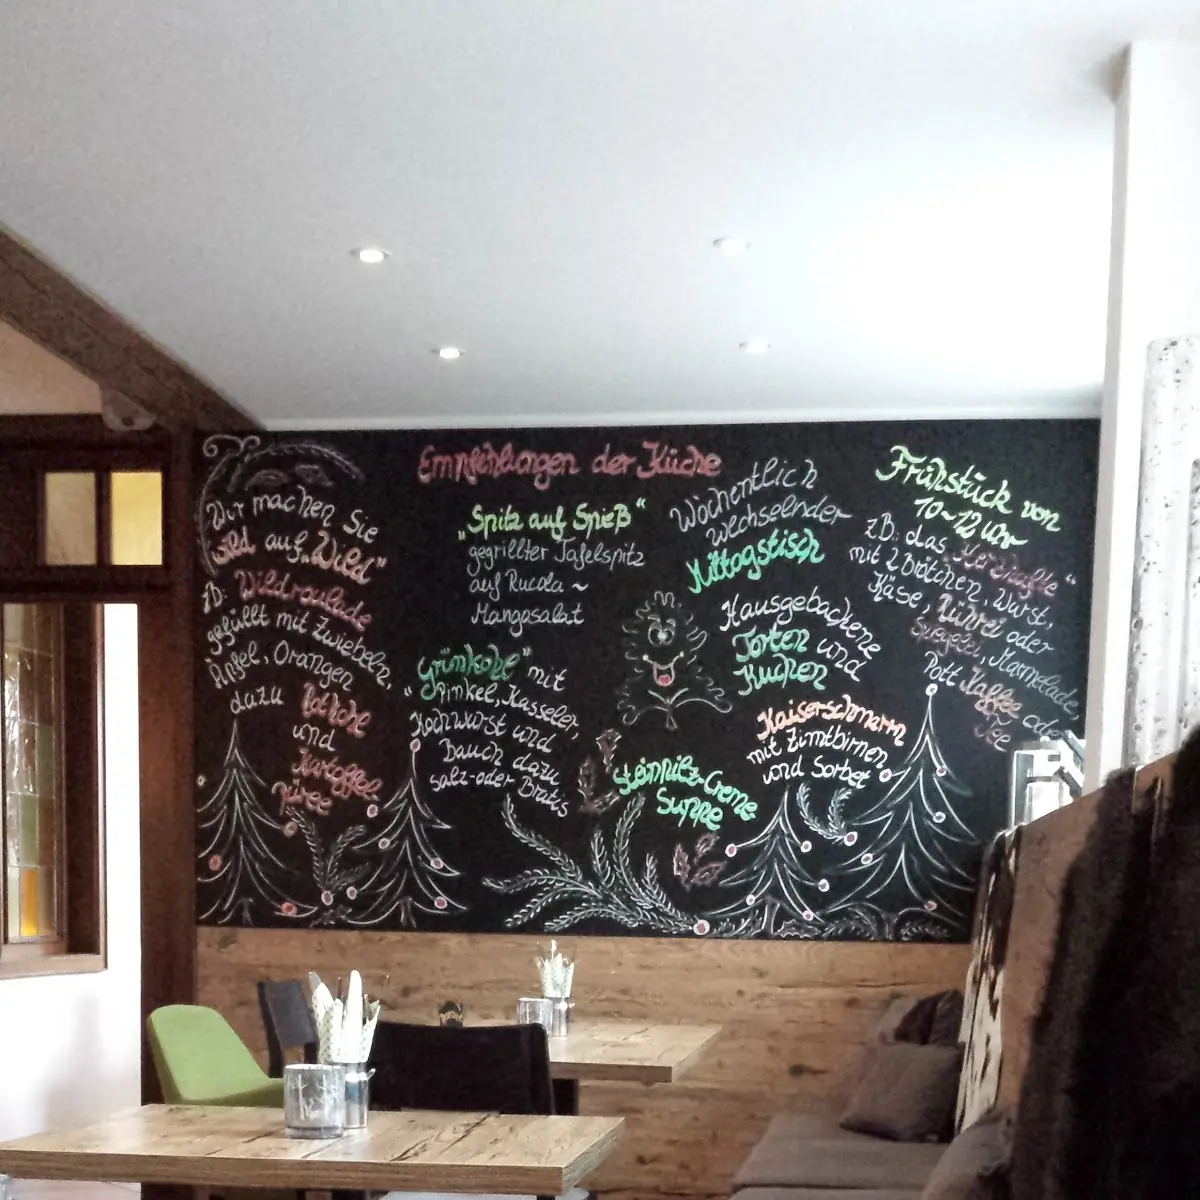 Empfehlungen der Küche
Wir machen Sie
wild auf „Wild"
z.B: Wildroulade
gefüllt mit Zwiebeln,
Äpfel, Orangen
dazu Rotkohl
und
Kartoffel
Püree
„Spitz auf Spieß"
gegrillter Tafelspitz
auf Rucola ~
Mangosalat
„Grünkohl" mit
Pinkel, Kasseler,
Kochwurst und
Bauch dazu
salz-oder Bratks
Wöchentlich
wechselnder
Mittagstisch
Hausgebackene
Torten und
Kuchen
Kaiserschmarrn
mit Zimtbirnen
und Sorbet
Steinpilz-Creme
Suppe
Frühstück von
10-12 Uhr
z.B: das „Herzhafte"
mit 2 Brötchen, Wurst,
Käse, Rührei oder
Spiegelei, Marmelade,
Pott Kaffee oder
Tee